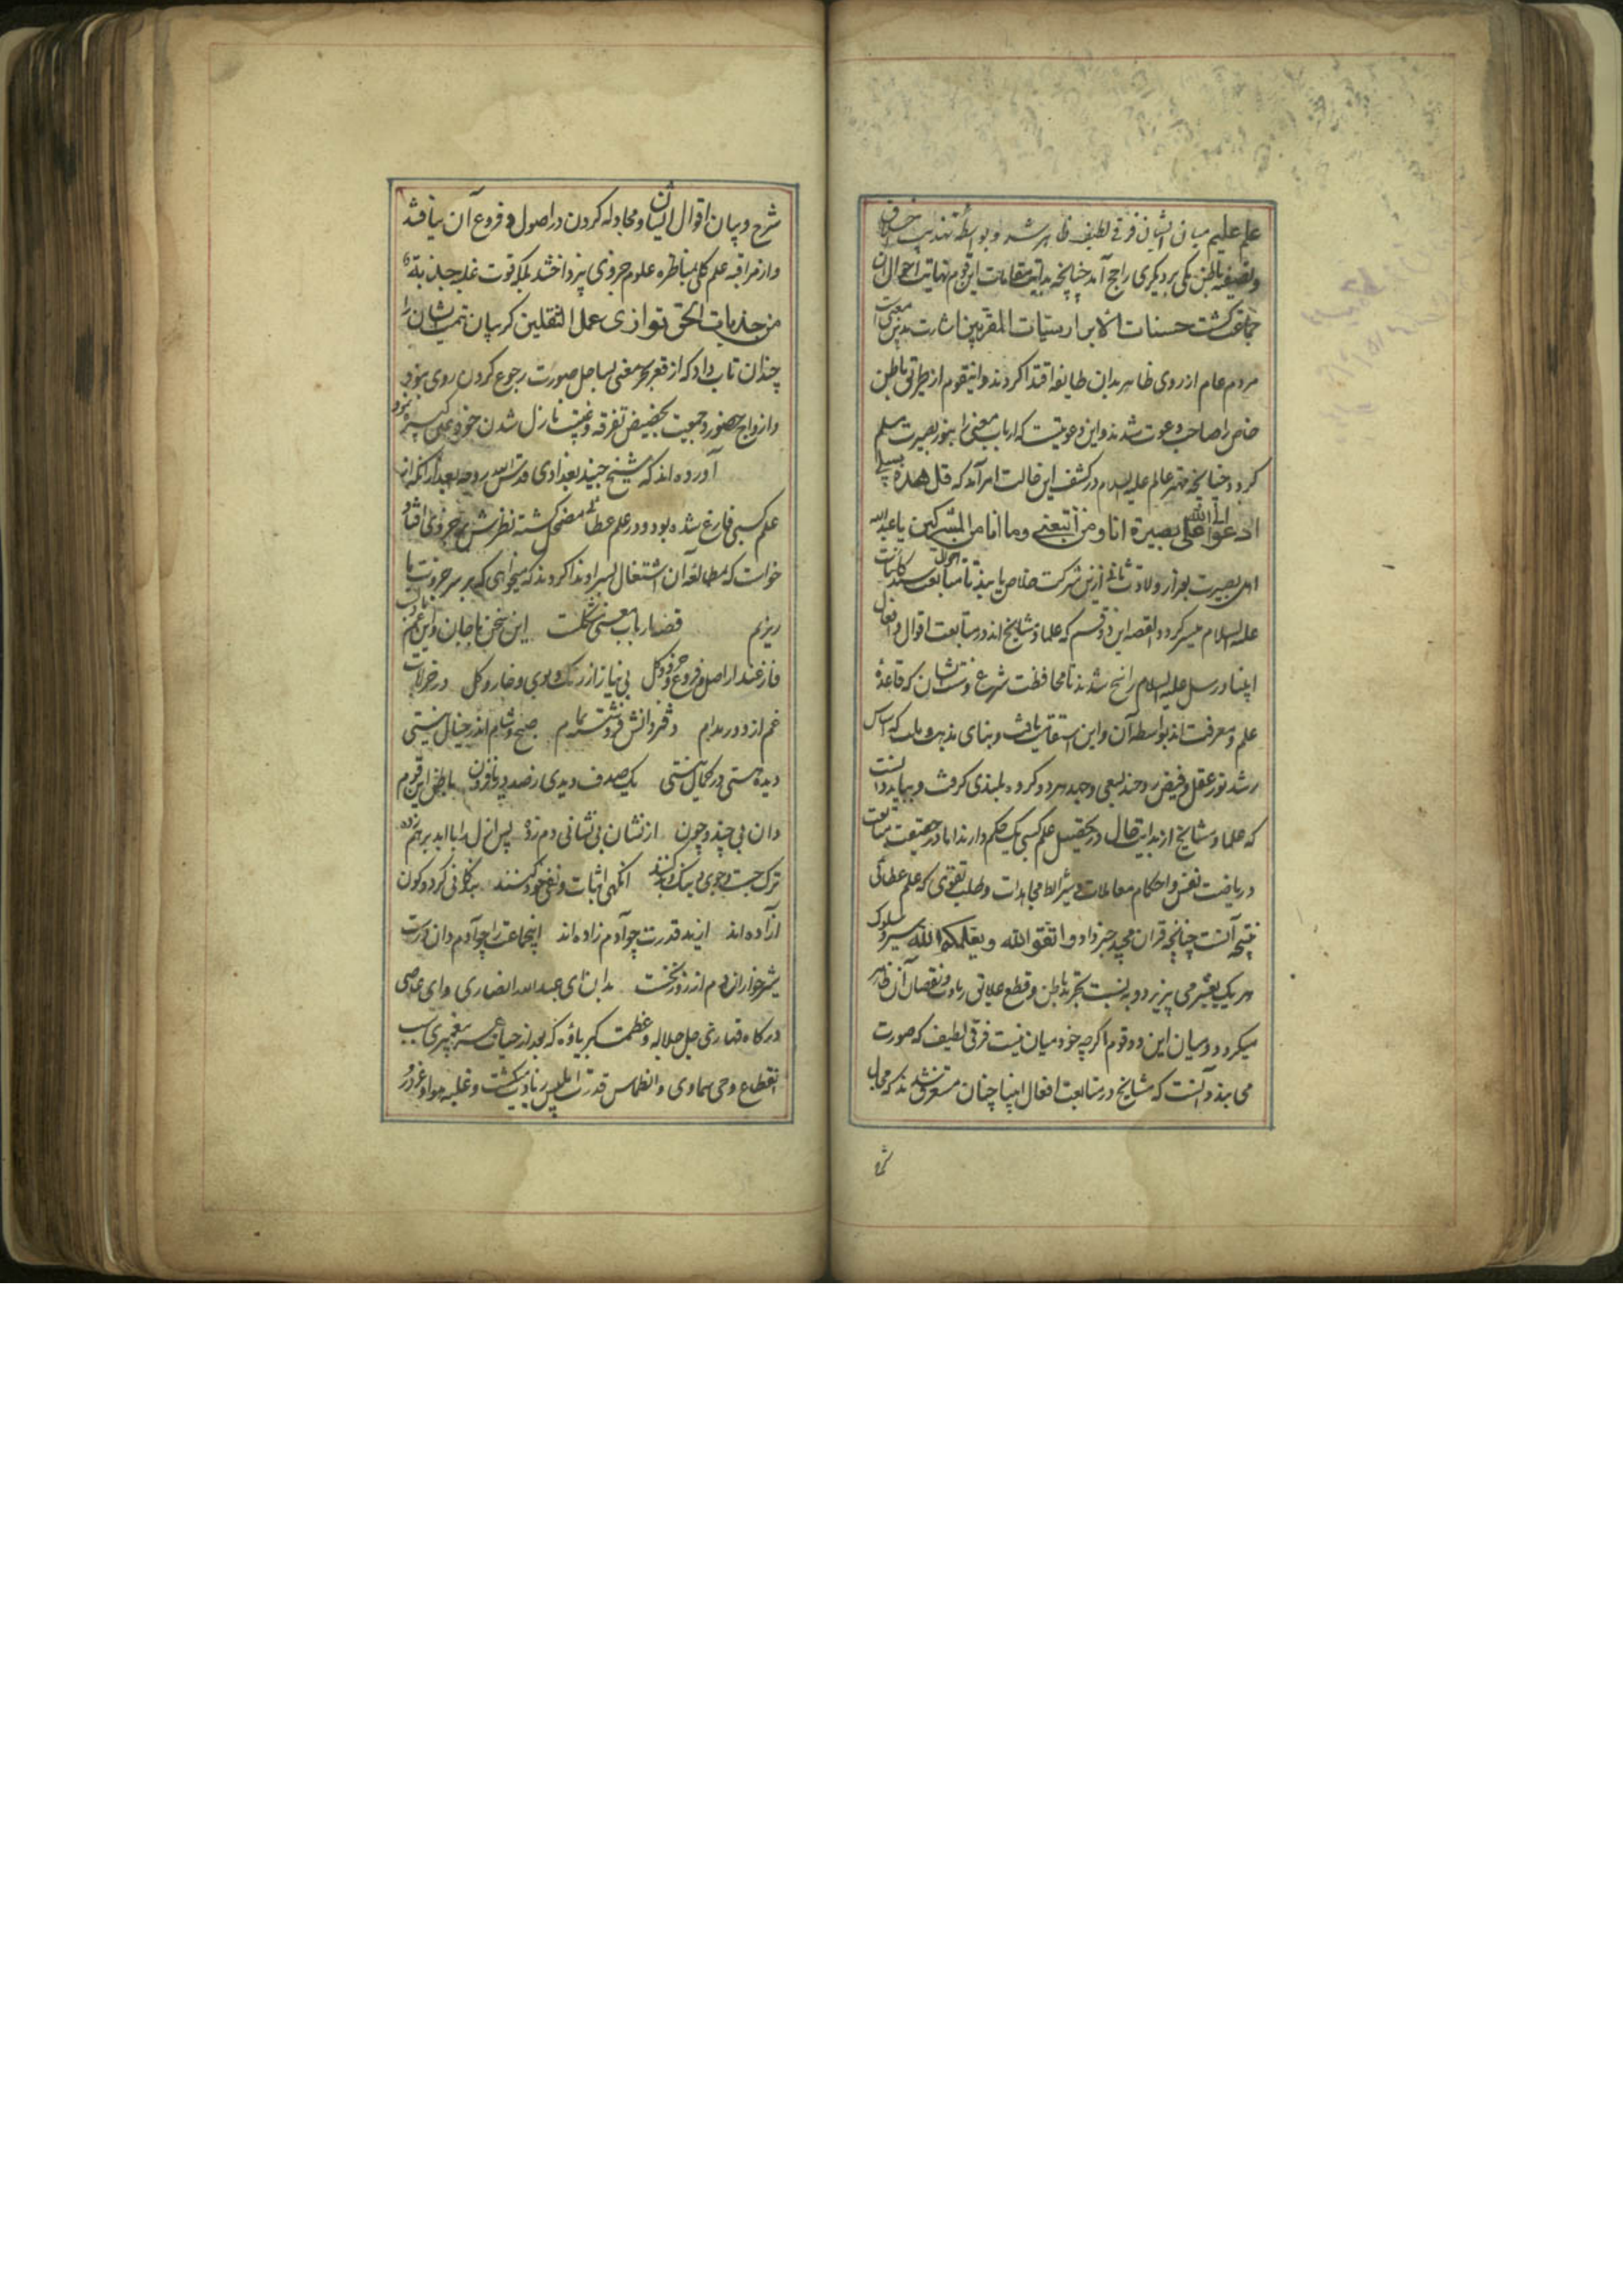 علم علیم میان ایشان فرقی لطیف ظاهر شد و بواسطه تهذیب اخلاق
و تصفیه باطن یکی بر دیگری راجح آمد چنانچه بدایت مقامات این قوم نهایت احوال آن
جماعت گشت حسنات الابرار سیئات المقربین اشارت بدین معنی است
مردم عام از روی ظاهر بدان طایفه اقتدا کردند و اینقوم از طریق باطن
خاص را صاحب دعوت شدند و این دعویست که ارباب معنی را بنور بصیرت مسلم
کردد چنانچه مهتر عالم علیه السلام در کشف این حالت امر آمد که قل هذه سبیلی
ادعوا الی الله علی بصیرة انا و من اتبعنی و ما انا من المشرکین یا عبدالله
اهل بصیرت بعد از ولادت ثانی ازین شرکت خلاص یابند تا متابعت سید کاینات
علیه السلام میسر کردد القصه این دو قسم که علما و مشایخ اند در متابعت اقوال و افعال
انبیا و رسل علیه السلام راسخ شدند تا محافظت شرع و سنت ایشان که قاعدهٔ
علم و معرفت اند بواسطه آن و این استقامت یافت و بنای مذهب و ملت که اساس
رشد نور عقل و فیض روحند بسعی و جهد هر دو کروه بلندی کرفت و بباید دانست
که علما و مشایخ از بدایت حال در تحصیل علم کسبی یک حکم دارند اما در حقیقت متابعت
در ریاضت نفس و احکام معاملات و شرایط مجاهدات و طلب تقوی که علم عطائی
نتیجه آنست چنانچه قران مجید خبر داد و اتقوا الله و یعلمکم الله سیر و سلوک
هر یک تغییر می پذیرد و به نسبت تجرید باطن و قطع علایق زیادت و نقصان آن ظاهر
میکردد و میان این دو قوم اگرچه خود میان نیست فرقی لطیف که صورت
می بندد آنست که مشایخ در متابعت افعال انبیا چنان مستغرق شدند که مجال
شرح
شرح و بیان اقوال ایشان و مجادله کردن در اصول و فروع آن نیافتند
و از مراقبه علم کلی بمناظره علوم جزوی نپرداختند بلکه قوت غلبه جذبة
من جذبات الحق توازی عمل الثقلین کریبان همت ایشان را
چندان تاب داد که از قعر بحر معنی بساحل صورت رجوع کردن روی ننمود
و از اوج حضور و جمعیت بحضیض تفرقه و غیبت نازل شدن خود میسر نبود
آورده اند که شیخ جنید بغدادی قدس الله روحه بعد از آنکه از
علم کسبی فارغ شده بود و در علم عطائی مضمحل گشته نظرش بر جزوی افتاد
خواست که بمطالعه آن اشتغال بسر او ندا کردند که میخواهی که بر سر جزوت باز
ریزیم قصه ارباب معنی مشکلست این سخن با جان و این غم با دلست
فارغند از اصل و فروع و جزو کل بی نیاز از رنک و بوی و خار و کل در خرابات
غم از دور مدام دفتر دانش فروشسته تمام صبح و شام اندر خیال نیستی
دیده هستی در کمال نیستی یک صدف دیدی ز صد دریا فزون باطن این قوم
دان بی چند و چون از نشان بی نشانی دم زده پس ازل را با ابد بر هم زده
ترک جست و جوی نیک و بد کنند انکهی اثبات و نفی خود کنند بندگانی کز دو کون
آزاده اند از ید قدرت چو آدم زاده اند اینجماعت را چو آدم دان درست
شیر خواران دم از روز نخست بدان ای عبدالله انصاری و ای عاصی
درکاه قهاری جل جلاله و عظمت کبریاؤه که بعد از حیات پیغمبری بسبب
انقطاع وحی سماوی و انطماس قدرت ابلیس زیادت گشت و غلبه هوا و غرور